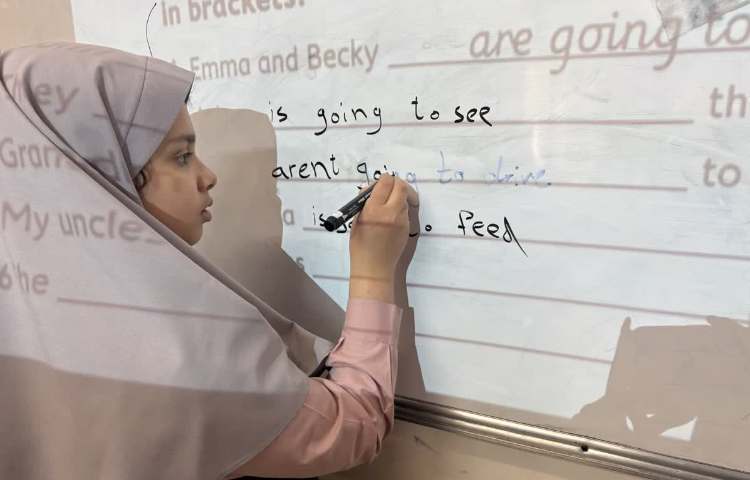 in brackets.
Emma and Becky are going to
is going to see th
arent going to drive to
My uncle
a is to feed
he